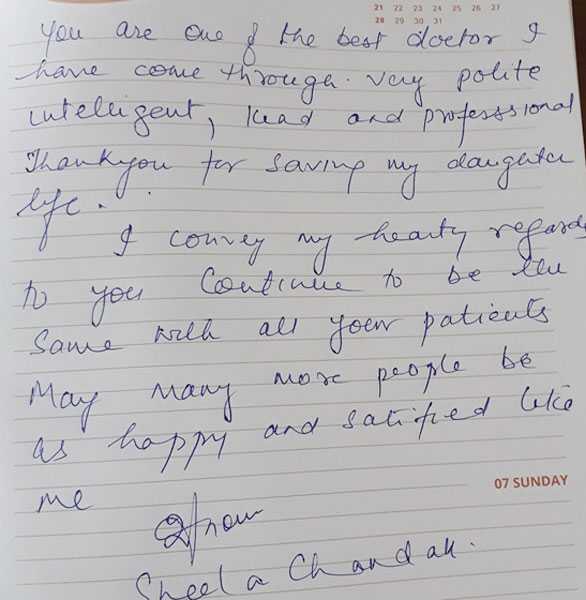 21 22 23 24 25 26 27
28 29 30 31
You are one of the best doctor I
have come through. Very polite
intelligent, kind and professsional
Thankyou for saving my daughter
life.
I convey my hearty regards
to you Continue to be the
same with all your patients
May many more people be
as happy and satified like
07 SUNDAY
me
Sheela Chandak.